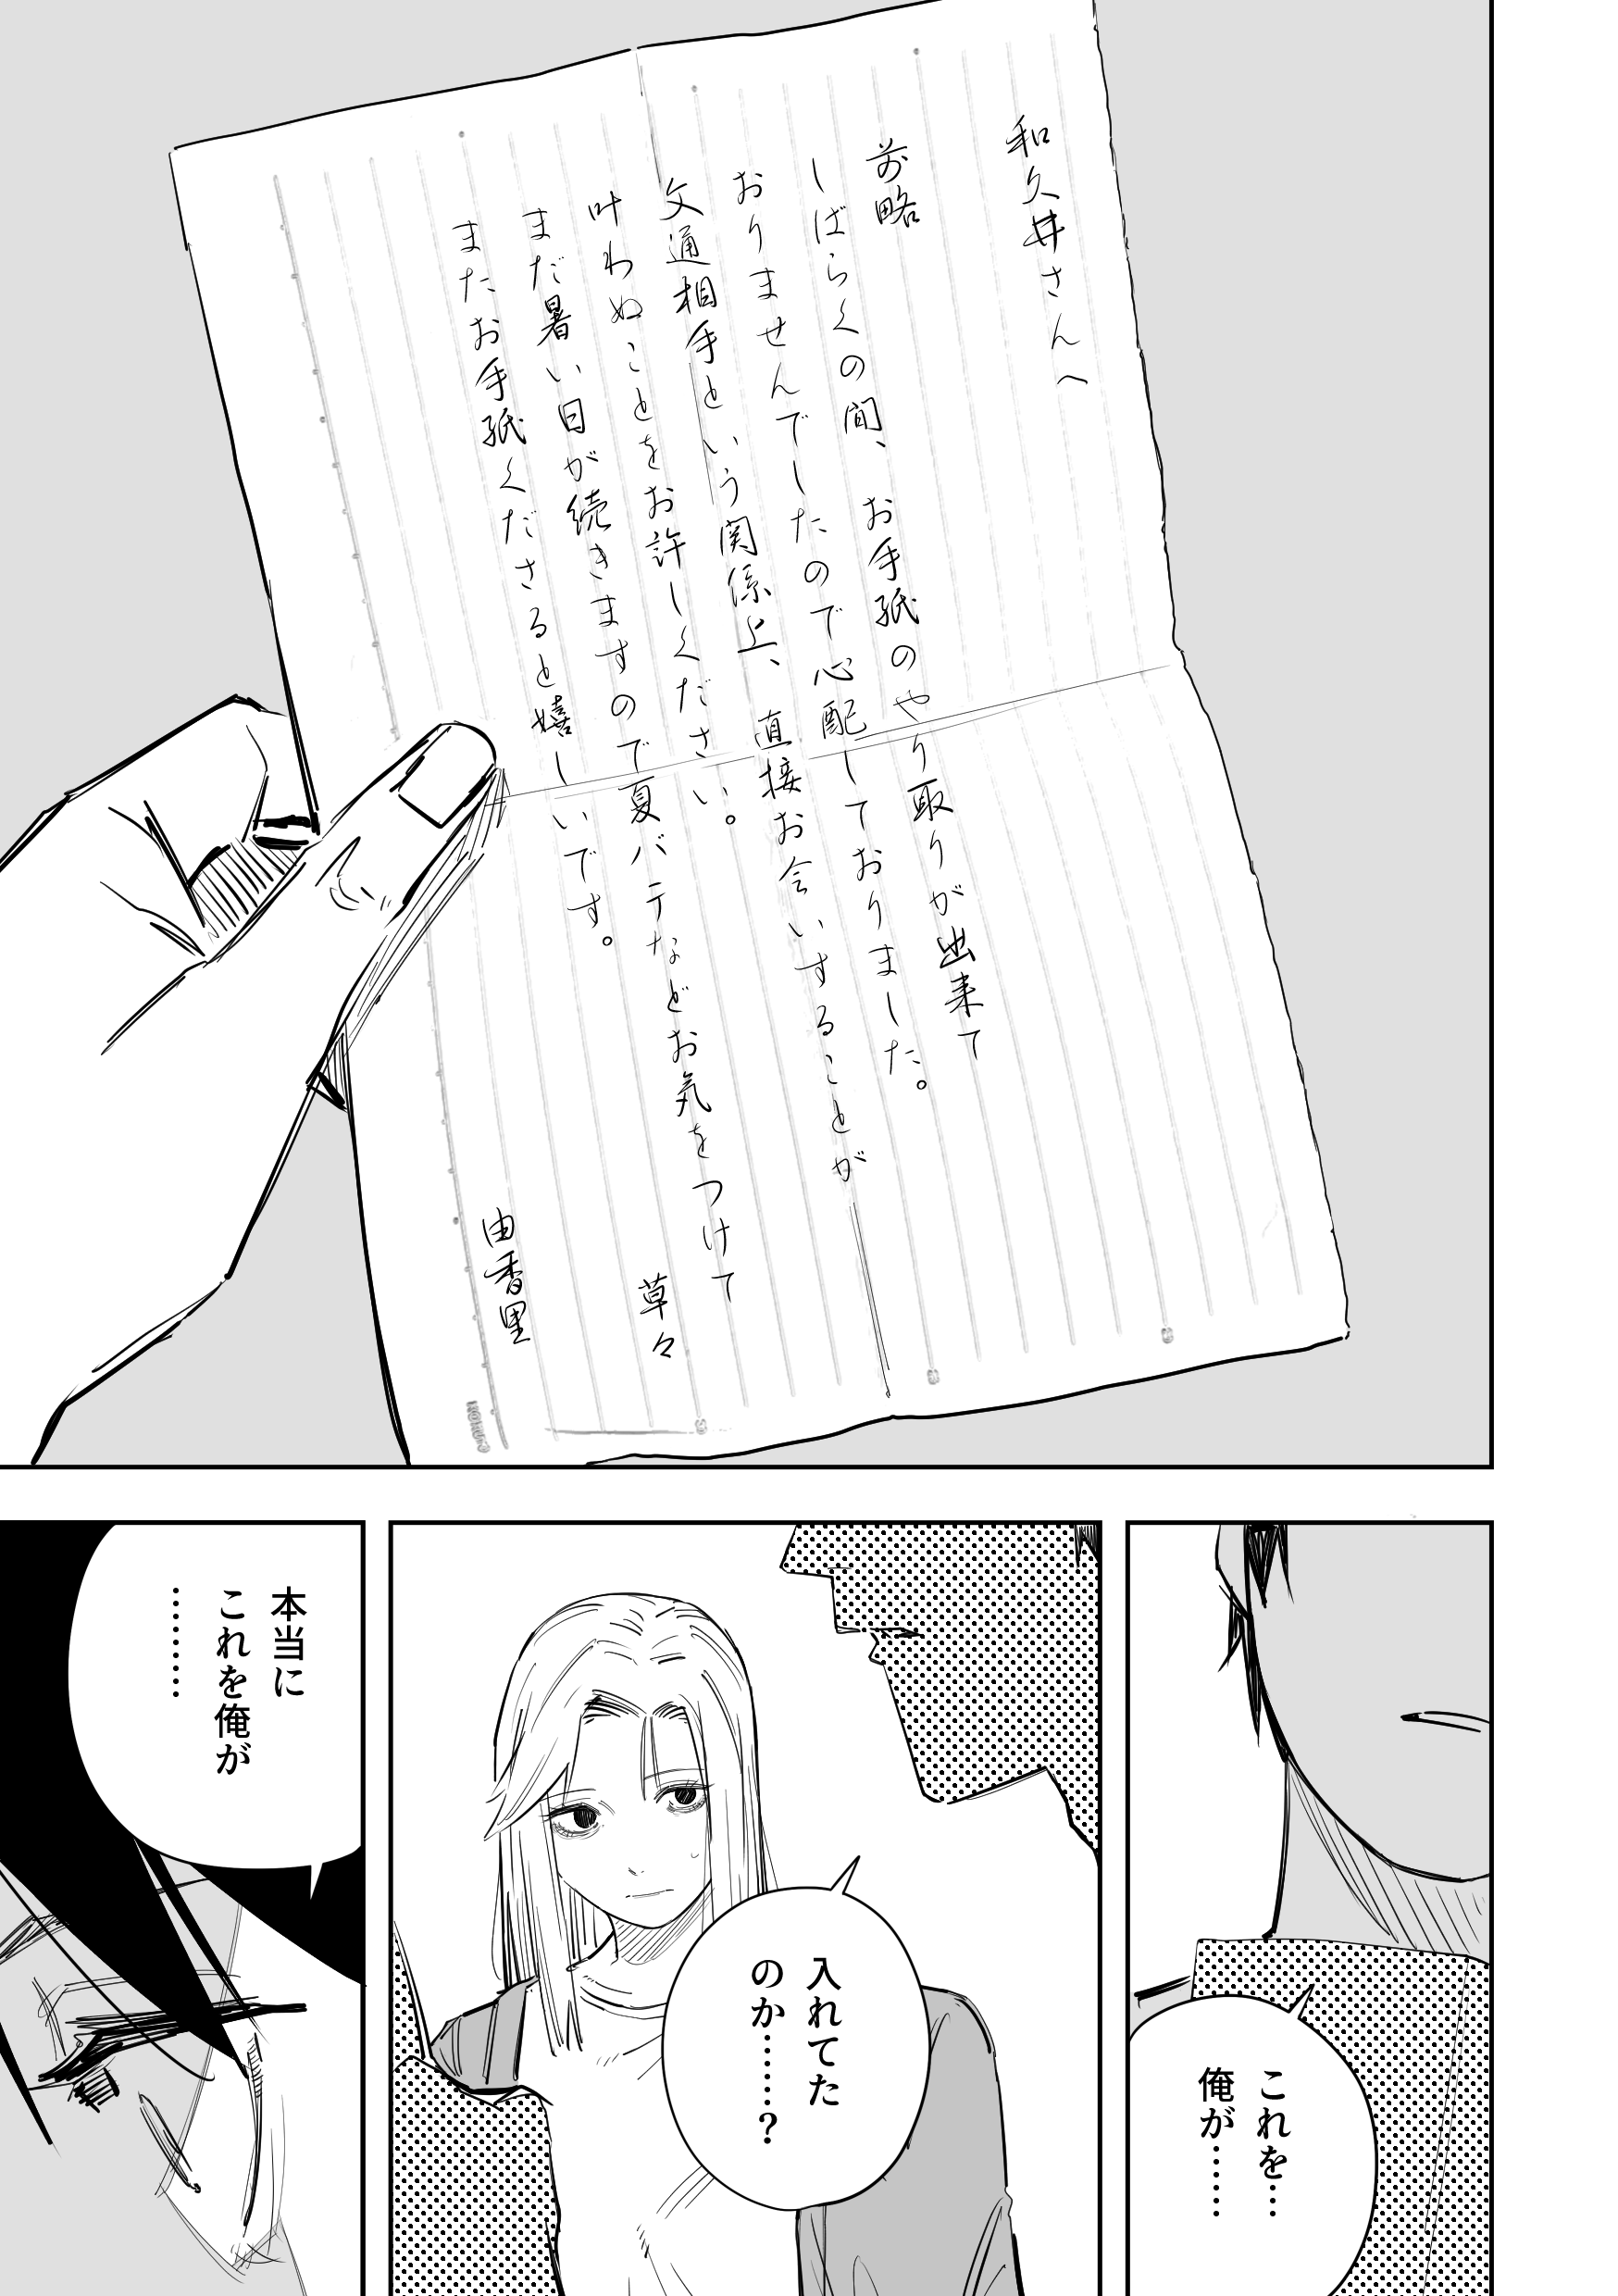 和久井さんへ
前略
しばらくの間、お手紙のやり取りが出来て
おりませんでしたので心配しておりました。
文通相手という関係上、直接お会いすることが
叶わぬことをお許しください。
まだ暑い日が続きますので夏バテなどお気をつけて
またお手紙くださると嬉しいです。
草々
由香里
これを…
俺が……
入れてた
のか……?
本当に
これを俺が
………